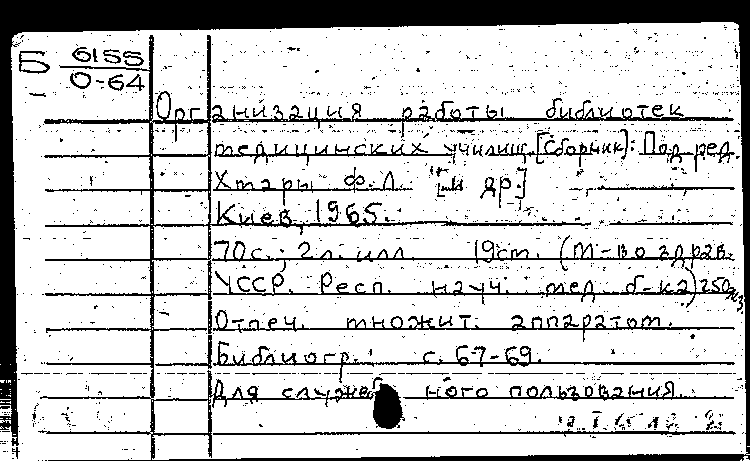 Б 6155
О-64
Организация работы библиотек
медицинских училищ. [Сборник]: Под ред.
Хтары Ф.Л. [и др.]
Киев, 1965.
70 с.; 2 л. илл. 19 ст. (М-во здрав.
УССР. Респ. науч. мед. б-ка) 250 экз.
Отпеч. множит. аппаратом.
Библиогр.: с. 67-69.
Для служеб ного пользования.